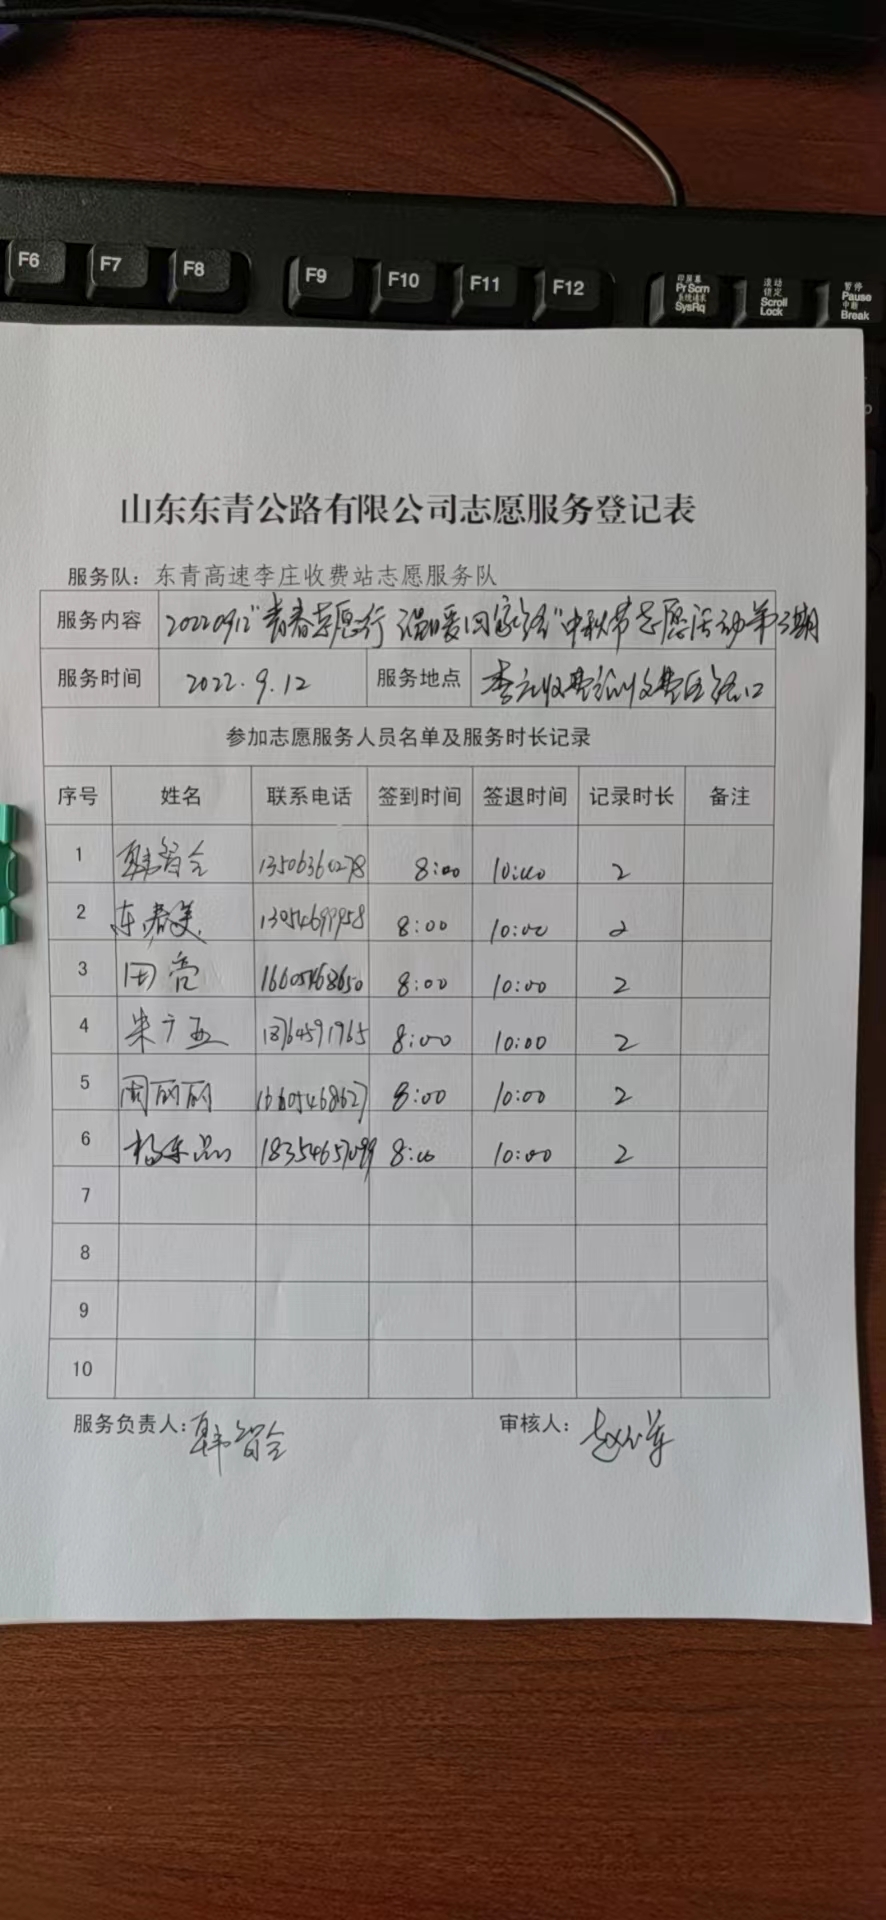 F6 F7 F8 F9 F10 F11 F12 印屏幕 Pr Scrn 系统请求 SysRq 滚动锁定 Scroll Lock 暂停 Pause 中断 Break
山东东青公路有限公司志愿服务登记表
服务队：东青高速李庄收费站志愿服务队
服务内容 20220912“青春志愿行 温暖回家路”中秋节志愿活动第三期
服务时间 2022.9.12 服务地点 收费站收费区路口
参加志愿服务人员名单及服务时长记录
序号 姓名 联系电话 签到时间 签退时间 记录时长 备注
1 韩智全 13506360278 8:00 10:00 2
2 东春美 8:00 10:00 2
3 田亮 16605468650 8:00 10:00 2
4 8:00 10:00 2
5 周丽丽 16605468627 8:00 10:00 2
6 18354657099 8:00 10:00 2
7
8
9
10
服务负责人：韩智全 审核人：